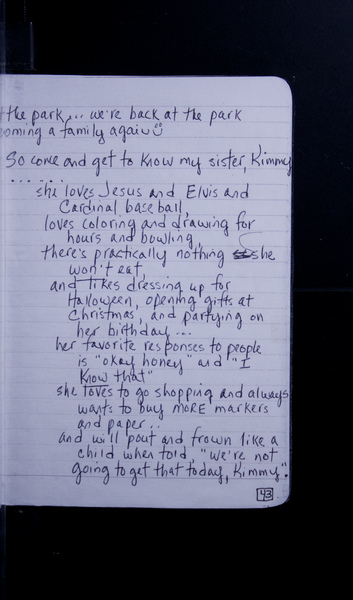 the park... we're back at the park
coming a family again
So come and get to know my sister, Kimmy
......
she loves Jesus and Elvis and
Cardinal baseball,
loves coloring and drawing for
hours and bowling,
there's practically nothing she
won't eat,
and likes dressing up for
Halloween, opening gifts at
Christmas, and partying on
her birthday...
her favorite responses to people
is "okay honey" and "I
know that"
she loves to go shopping and always
wants to buy MORE markers
and paper..
and will pout and frown like a
child when told, "we're not
going to get that today, Kimmy".
43